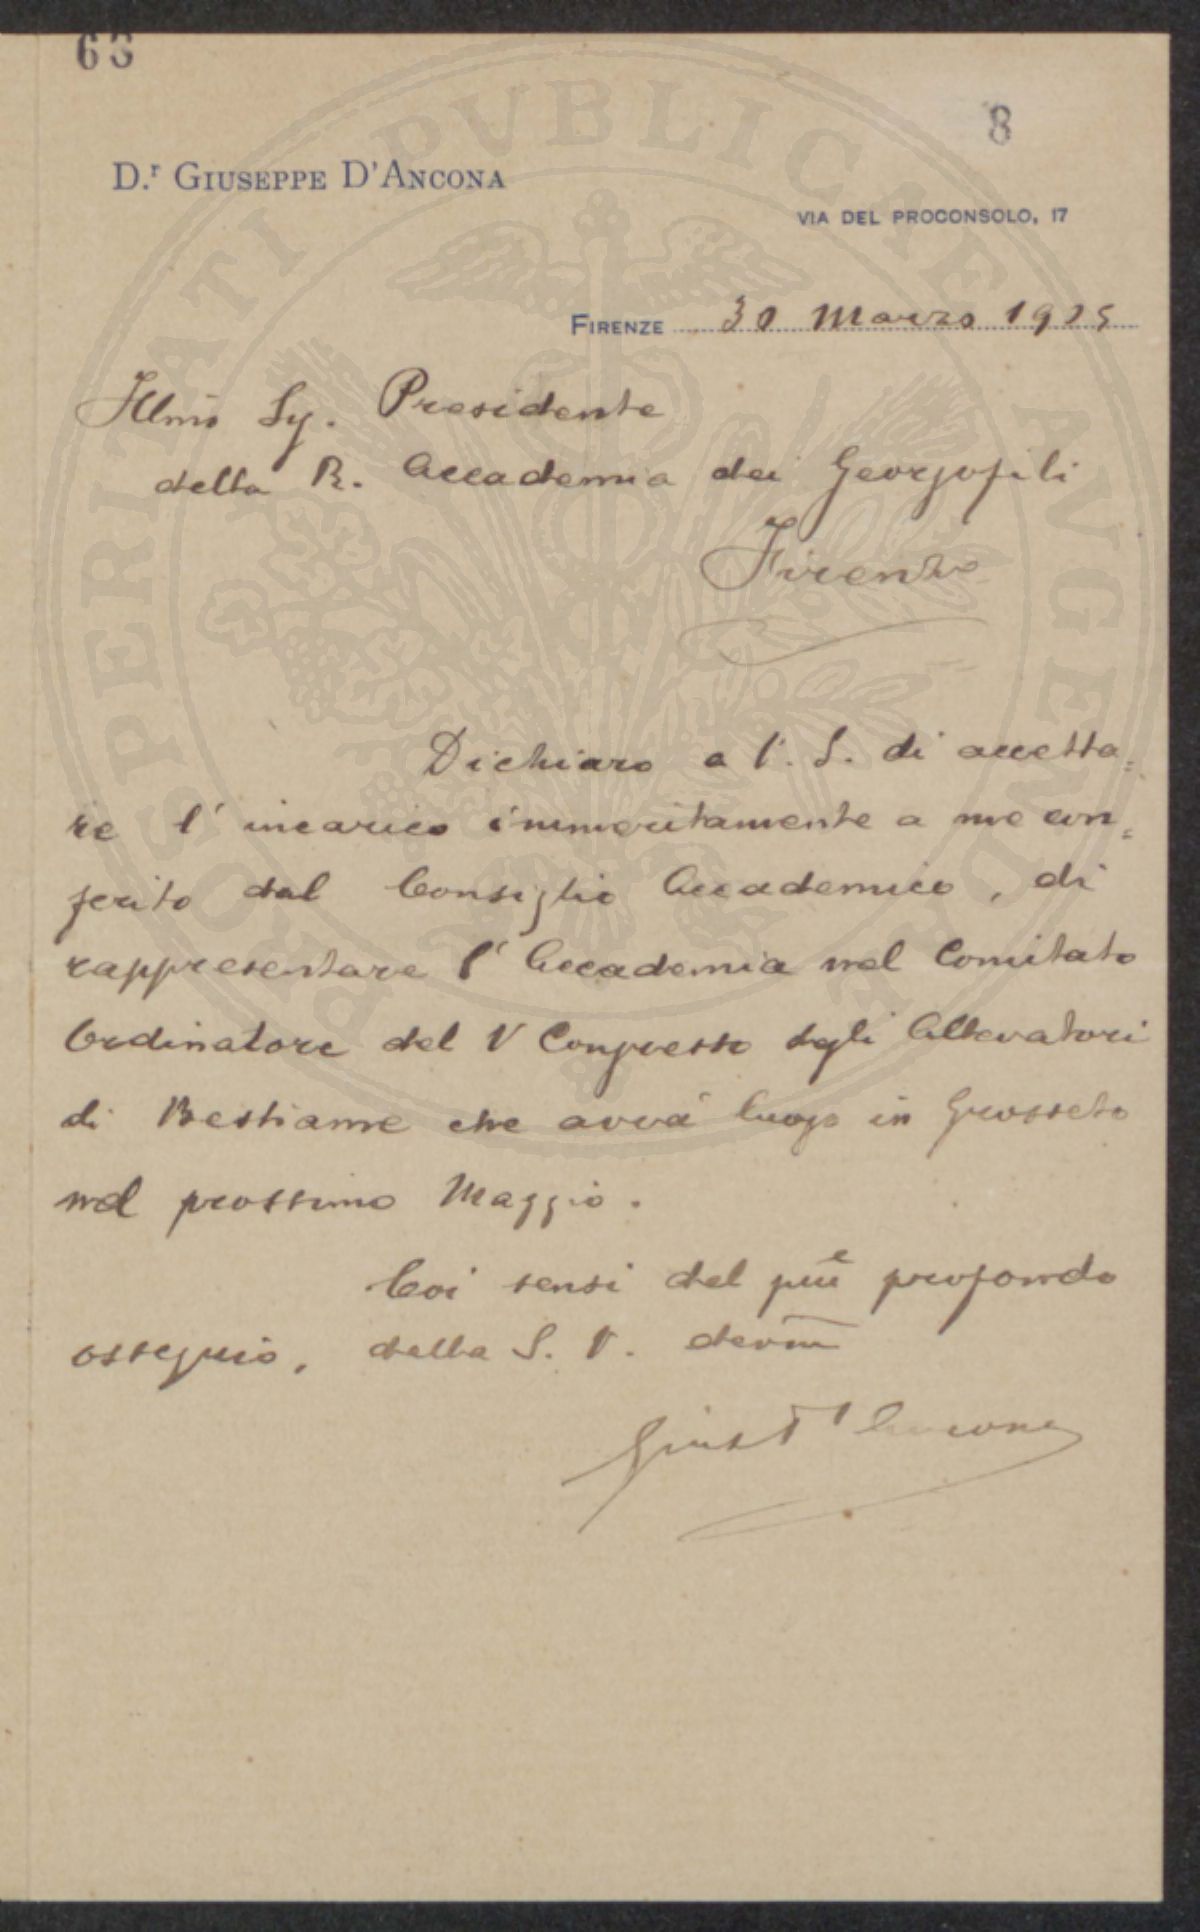 63
8
D.r GIUSEPPE D'ANCONA
VIA DEL PROCONSOLO, 17
FIRENZE 30 Marzo 1925
Illmo Sg. Presidente
della R. Accademia dei Georgofili
Firenze
Dichiaro a V. S. di accetta=
re l'incarico immeritamente a me con=
ferito dal Consiglio Accademico, di
rappresentare l'Accademia nel Comitato
Ordinatore del V Congresso degli Allevatori
di Bestiame che avrà luogo in Grosseto
nel prossimo Maggio.
Coi sensi del più profondo
ossequio, della S. V. devm
Gius D'Ancona
PROSPERITATI PVBLICAE AVGENDAE